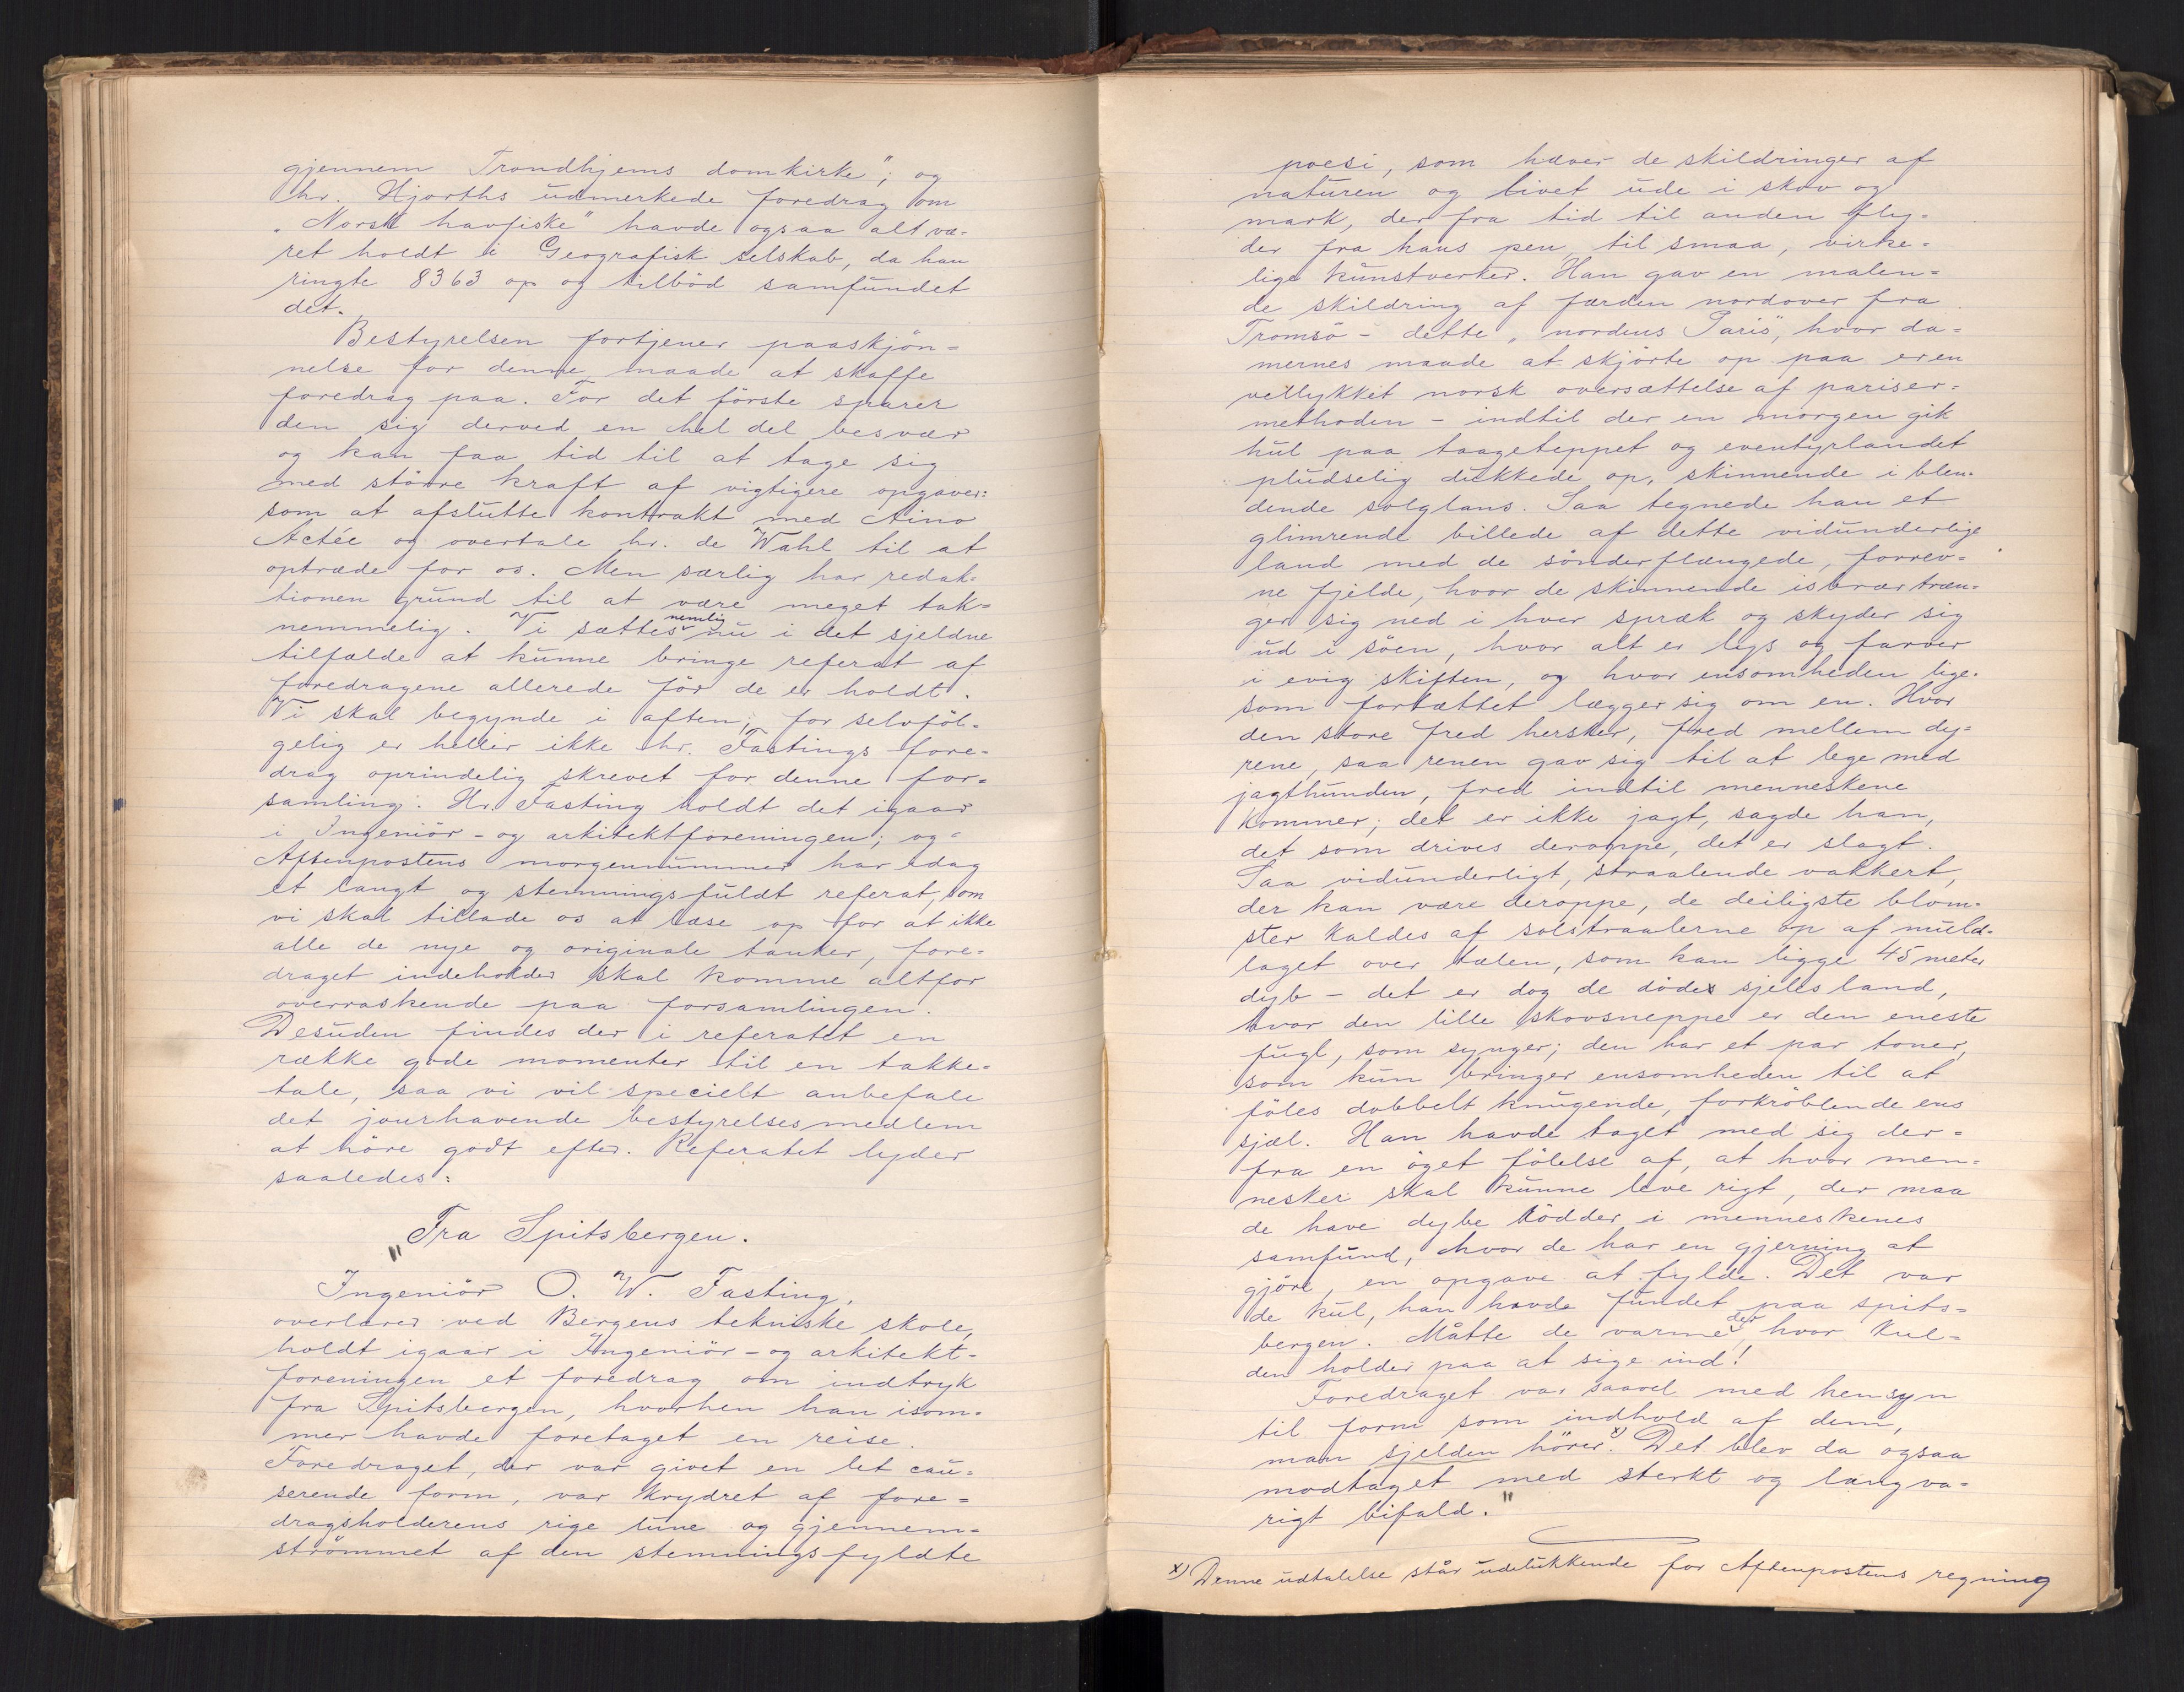 gjennem Trondhjems domkirke"; og
hr. Hjorths udmerkede foredrag om
„Norsk havfiske" havde ogsaa alt væ-
ret holdt i Geografisk selskab, da han
ringte 8363 op og tilböd samfundet
det.
Bestyrelsen fortjener paaskjön-
nelse for denne maade at skaffe
foredrag paa. For det förste sparer
den sig derved en hel del besvær
og kan faa tid til at tage sig
med större kraft af vigtigere opgaver:
som at afslutte kontrakt med Aino
Actée og overtale hr. de Wahl til at
optræde for os. Men særlig har redak-
tionen grund til at være meget tak-
nemmelig. Vi sættes nemlig nu i det sjeldne
tilfælde at kunne bringe referat af
foredragene allerede för de er holdt.
Vi skal begynde i aften; for selvföl-
gelig er heller ikke hr. Fastings fore-
drag oprindelig skrevet for denne for-
samling. Hr. Fasting holdt det igaar
i Ingeniör- og arkitektforeningen; og
Aftenpostens morgennummer har idag
et langt og stemningsfuldt referat, som
vi skal tillade os at læse op for at ikke
alle de nye og originale tanker, fore-
draget indeholder skal komme altfor
overraskende paa forsamlingen.
Desuden findes der i referatet en
række gode momenter til en takke-
tale, saa vi vil specielt anbefale
det jourhavende bestyrelsesmedlem
at höre godt efter. Referatet lyder
saaledes:
„Fra Spitsbergen.
Ingeniör O. W. Fasting,
overlærer ved Bergens tekniske skole,
holdt igaar i Ingeniör- og arkitekt-
foreningen et foredrag om indtryk
fra Spitsbergen, hvorhen han isom-
mer havde foretaget en reise.
Foredraget, der var givet en let cau-
serende form, var krydret af fore-
dragsholderens rige lune og gjennem-
strömmet af den stemningsfyldte
poesi, som hæver de skildringer af
naturen og livet ude i skov og
mark, der fra tid til anden fly-
der fra hans pen, til smaa, virke-
lige kunstverker. Han gav en malen-
de skildring af færden nordover fra
Tromsö - dette „nordens Paris", hvor da-
mernes maade at skjörte op paa er en
vellykket norsk oversættelse af pariser-
methoden - indtil der en morgen gik
hul paa taageteppet og eventyrlandet
pludselig dukkede op, skinnende i blen-
dende solglans. Saa tegnede han et
glimrende billede af dette vidunderlige
land med de sönderflængede, forrev-
ne fjelde, hvor de skinnende isbræer træn-
ger sig ned i hver spræk og skyder sig
ud i söen, hvor alt er lys og farver
i evig skiften, og hvor ensomheden lige-
som fortættet lægger sig om en. Hvor
den store fred hersker, fred mellem dy-
rene, saa renen gav sig til at lege med
jagthunden, fred indtil menneskene
kommer; det er ikke jagt, sagde han,
det som drives deroppe, det er slagt.
Saa vidunderligt, straalende vakkert,
der kan være deroppe, de deiligste blom-
ster kaldes af solstraalerne op af muld-
laget over tælen, som kan ligge 45 meter
dyb - det er dog de dödes sjeles land,
hvor den lille skovsneppe er den eneste
fugl, som synger; den har et par toner,
som kun bringer ensomheden til at
föles dobbelt knugende, forkröblende ens
sjæl. Han havde taget med sig der-
fra en öget fölelse af, at hvor men-
nesker skal kunne leve rigt, der maa
de have dybe rödder i menneskenes
samfund, hvor de har en gjerning at
gjöre, en opgave at fylde. Det var
de kul, han havde fundet paa spits-
bergen. Måtte de varme der, hvor kul-
den holder paa at sige ind!
Foredraget var saavel med hensyn
til form som indhold af dem,
man sjelden hörer.x) Det blev da ogsaa
modtaget med sterkt og langva-
rigt bifald."
x) Denne udtalelse står udelukkende for Aftenpostens regning